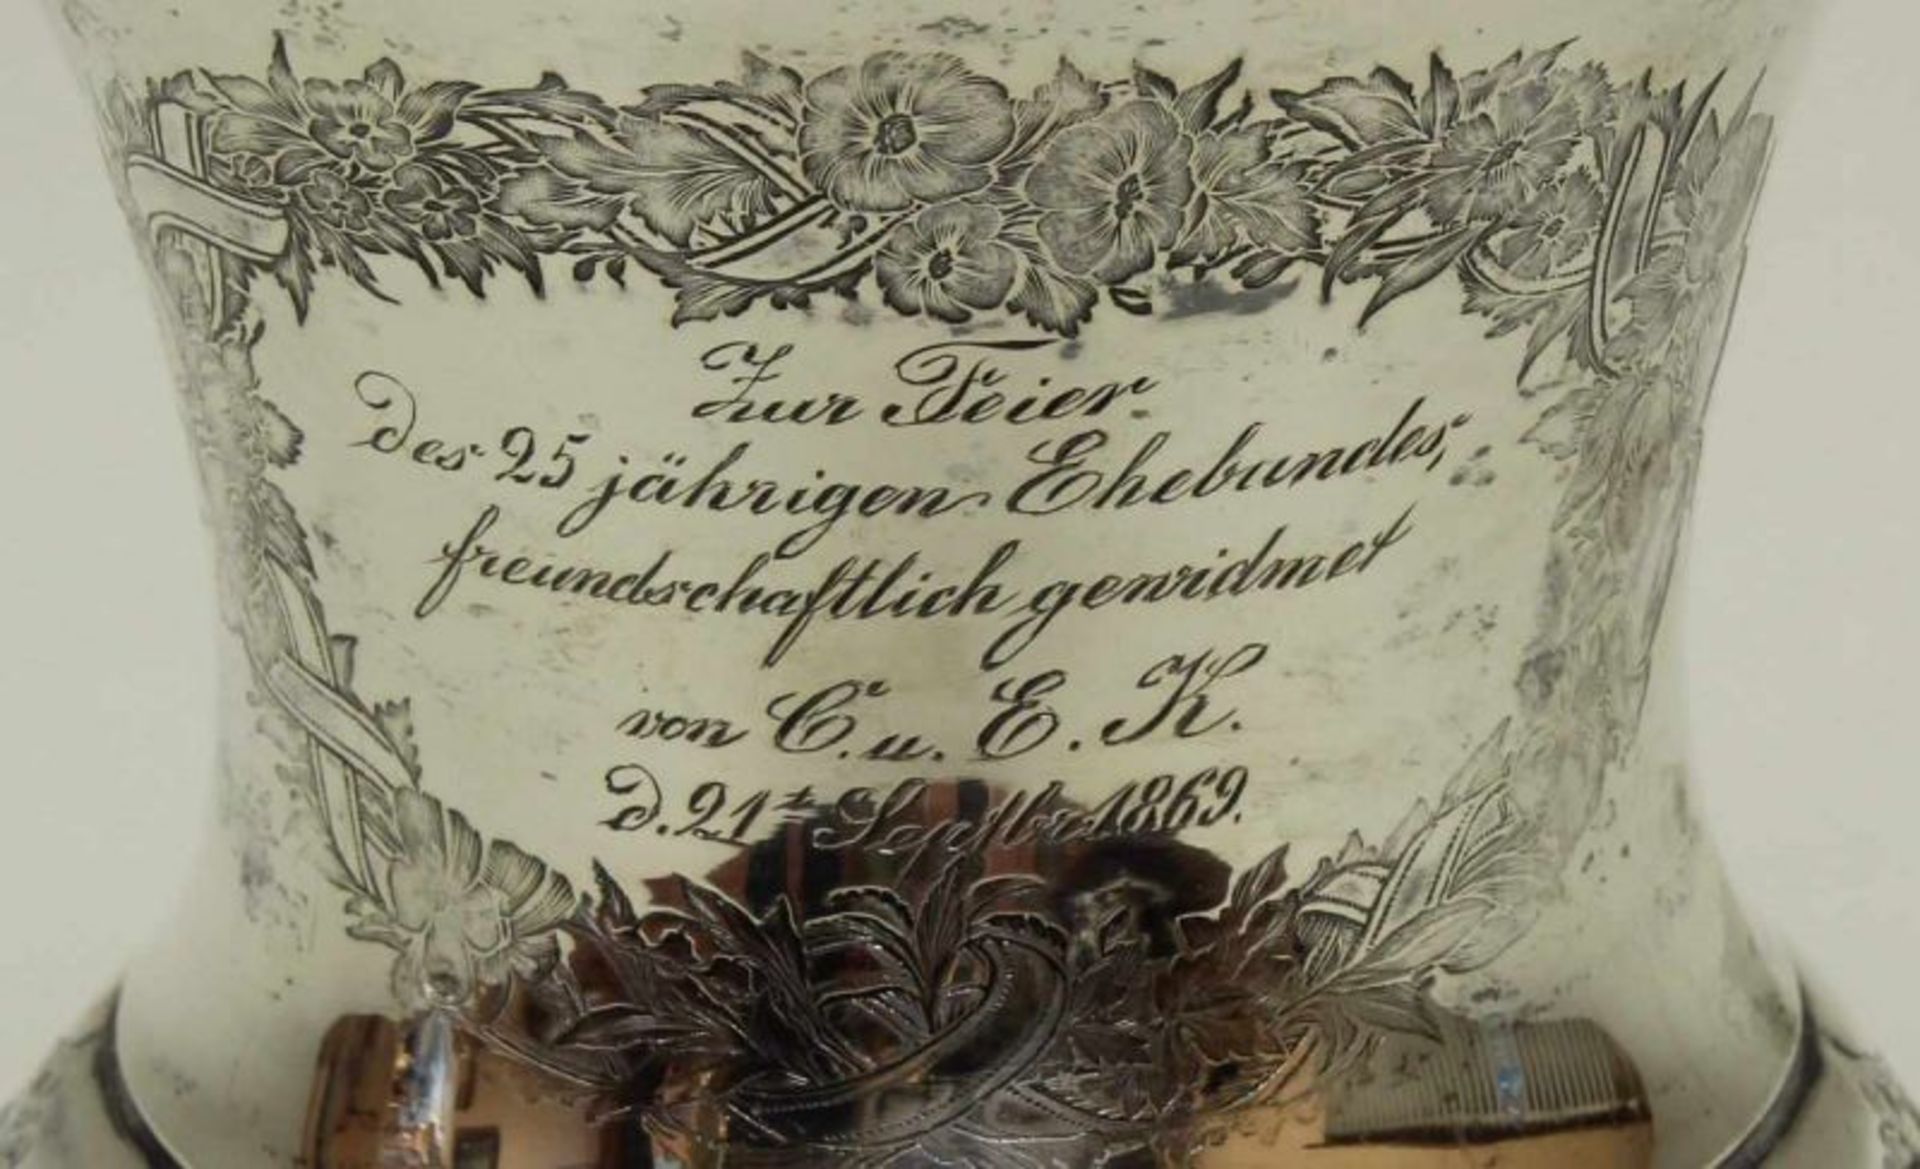 Zur Feier
des 25 jährigen Ehebundes,
freundschaftlich gewidmet
von C. u. E. K.
D. 21t Septbr 1869.